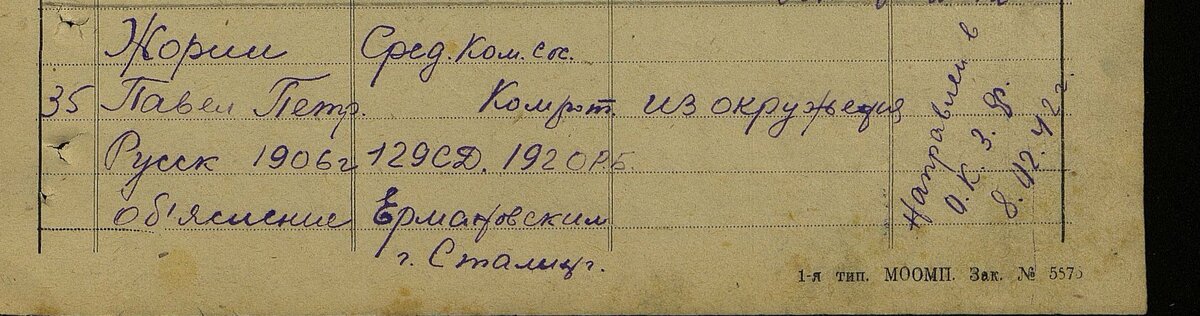 Жорин Сред.Ком.Сос.
35 Павел Петр. Комрот. из окружения
Русск 1906г 129СД. 192ОРБ.
Об'яснение
г. Сталингр.
Направлен в
О.К.З.Ф.
8.12.42г.
1-я тип. МООМП. Зак. № 5575